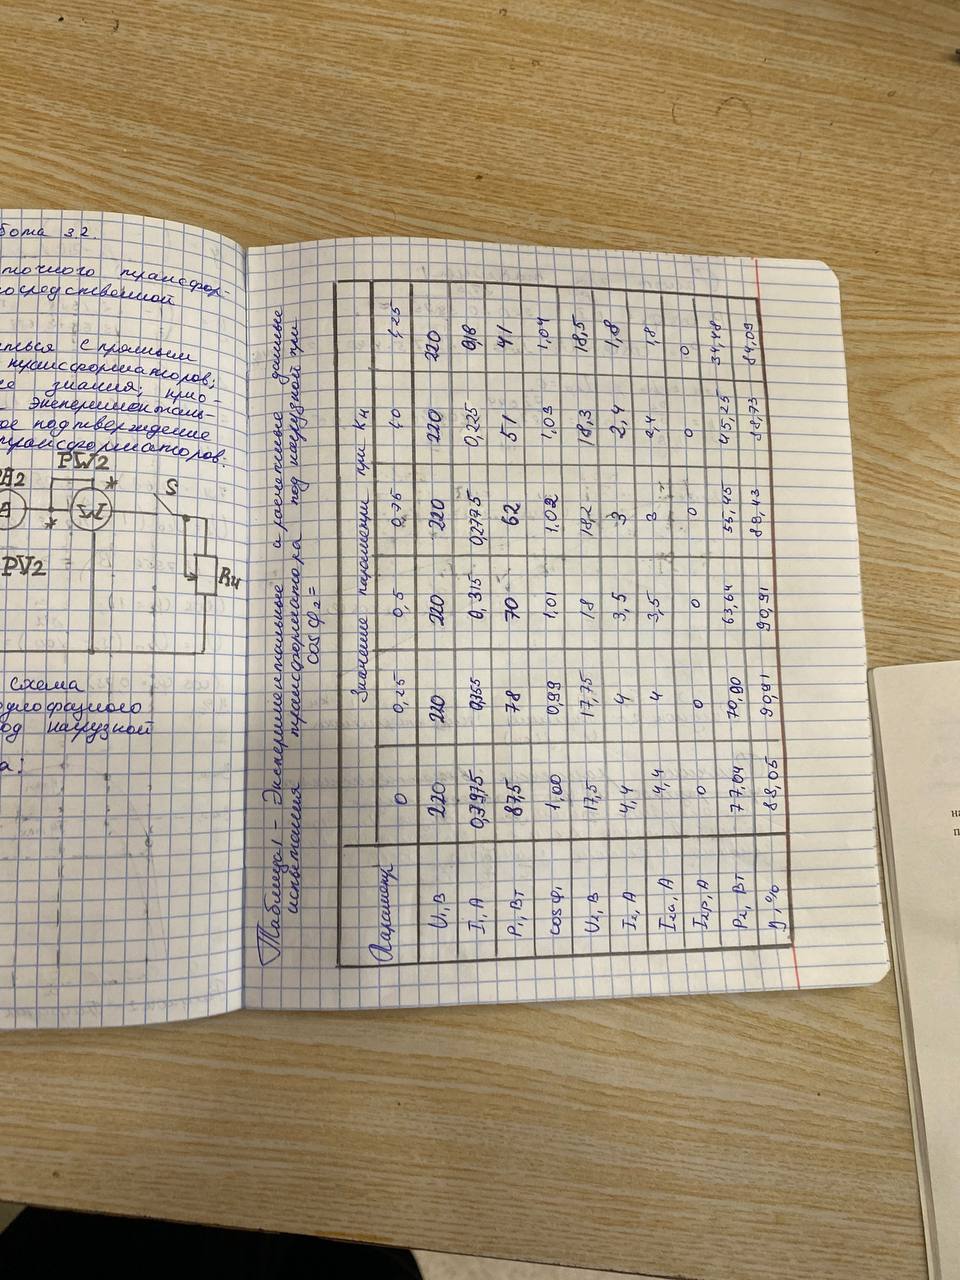 бота 32.
точного трансфор-
посредственной
иться с прямым
трансформаторов;
знания, прио-
экспериментль-
ое подтверждение
трансформаторов.
PA2
A
PW2
*
*
W
S
PV2
Rн
схема
однофазного
од нагрузкой
а:
Таблица 1 – Экспериментальные и расчетные данные
испытания трансформатора под нагрузкой при
cos φ₂ =
Параметр Значение параметра при Kн
0 0,25 0,5 0,75 1,0 1,25
U₁, В 220 220 220 220 220 220
I₁, А 0,3975 0,355 0,315 0,2775 0,225 0,18
P₁, Вт 87,5 78 70 62 51 41
cosφ₁ 1,00 0,99 1,01 1,02 1,03 1,04
U₂, В 17,5 17,75 18 18,2 18,3 18,5
I₂, А 4,4 4 3,5 3 2,4 1,8
I₂а, А 4,4 4 3,5 3 2,4 1,8
I₂р, А 0 0 0 0 0 0
P₂, Вт 77,04 70,90 63,64 55,45 45,25 34,48
η, % 88,05 90,91 90,91 89,43 88,73 84,09